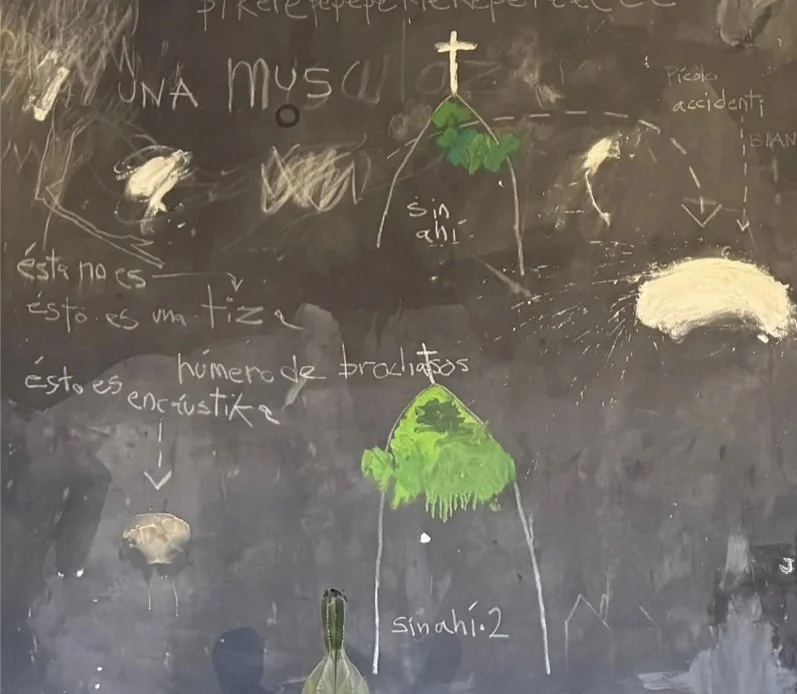 UNA Musculoz
Picolo
accidenti
BIAN
sin
ahí
ésta no es
ésto es una tiza
número de brochasos
ésto es
encáustika
sinahí.2